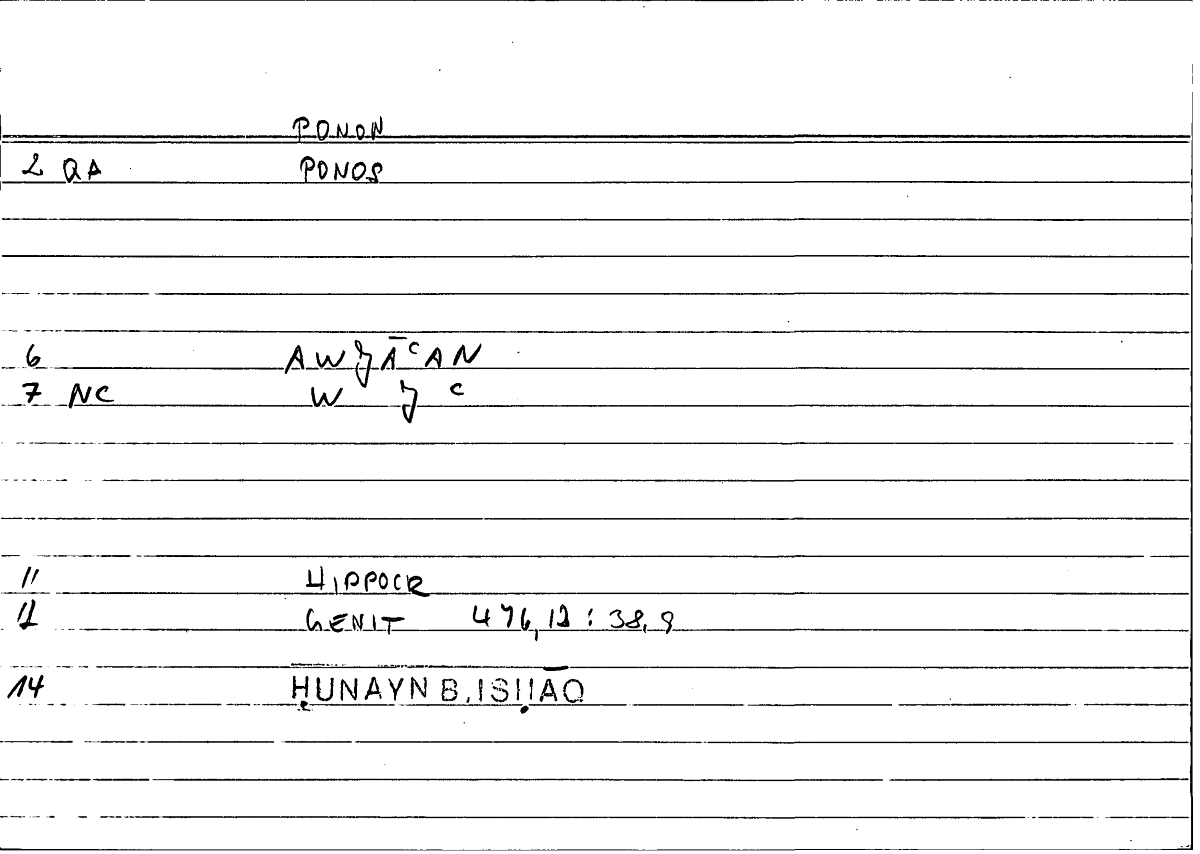 PONON
2 QA PONOS
6 AWǧĀᶜAN
7 NC W ǧ ᶜ
11 HIPPOCR
12 GENIT 476,12 : 38,9
14 ḤUNAYN B. ISḤĀQ